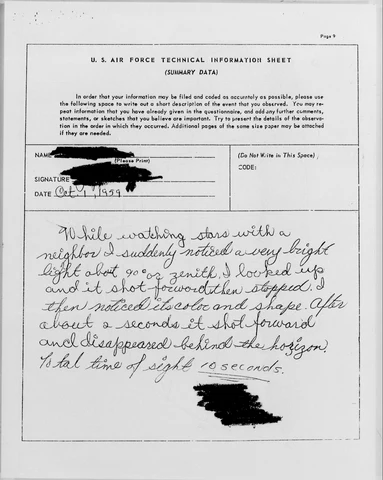 Page 9
U. S. AIR FORCE TECHNICAL INFORMATION SHEET
(SUMMARY DATA)
In order that your information may be filed and coded as accurately as possible, please use
the following space to write out a short description of the event that you observed. You may re-
peat information that you have already given in the questionnaire, and add any further comments,
statements, or sketches that you believe are important. Try to present the details of the observa-
tion in the order in which they occurred. Additional pages of the same size paper may be attached
if they are needed.
NAME
(Please Print)
SIGNATURE
DATE Oct 1, 1959
(Do Not Write in This Space)
CODE:
While watching stars with a
neighbor I suddenly noticed a very bright
light abot 90° or zenith. I looked up
and it shot forward then stopped. I
then noticed its color and shape. After
about 2 seconds it shot forward
and disappeared behind the horizon.
Total time of sight 10 seconds.